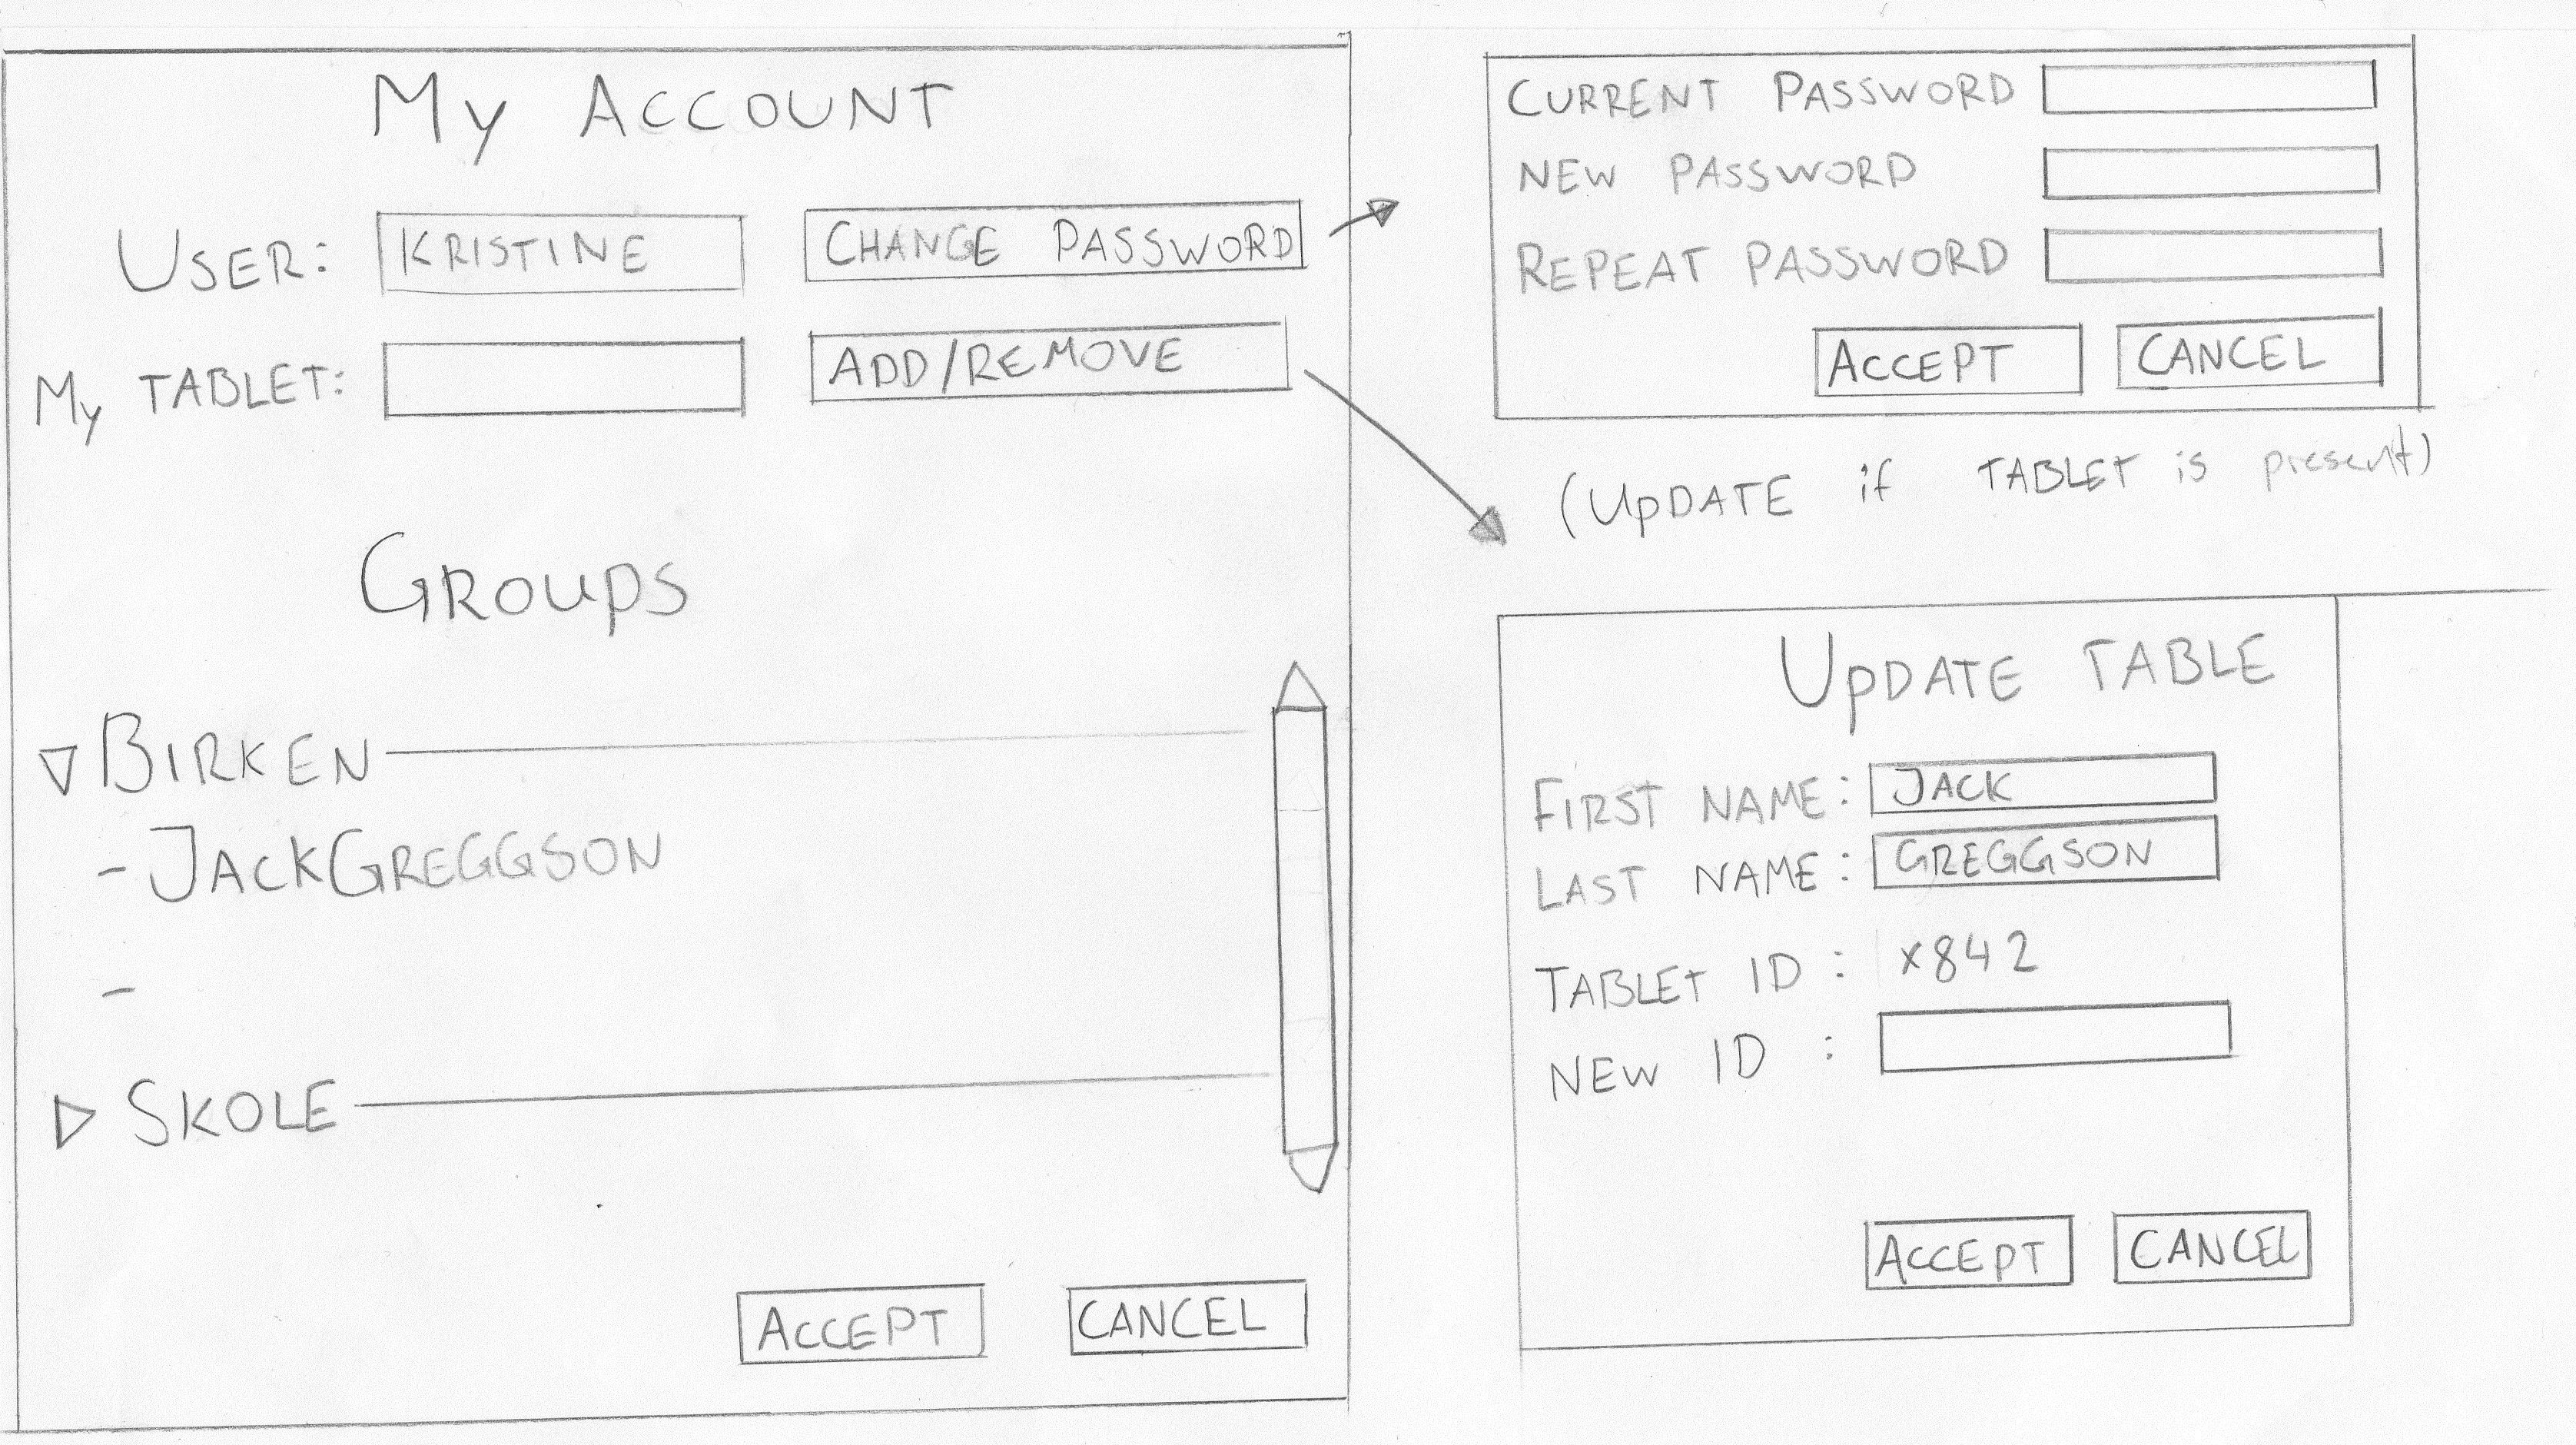 My ACCOUNT
USER: KRISTINE CHANGE PASSWORD
My TABLET: ADD/REMOVE
GROUPS
BIRKEN
- JACKGREGGSON
-
SKOLE
ACCEPT CANCEL
CURRENT PASSWORD
NEW PASSWORD
REPEAT PASSWORD
ACCEPT CANCEL
(UpDATE if TABLET is present)
UpDATE TABLE
FIRST NAME: JACK
LAST NAME: GREGGSON
TABLET ID: x842
NEW ID:
ACCEPT CANCEL